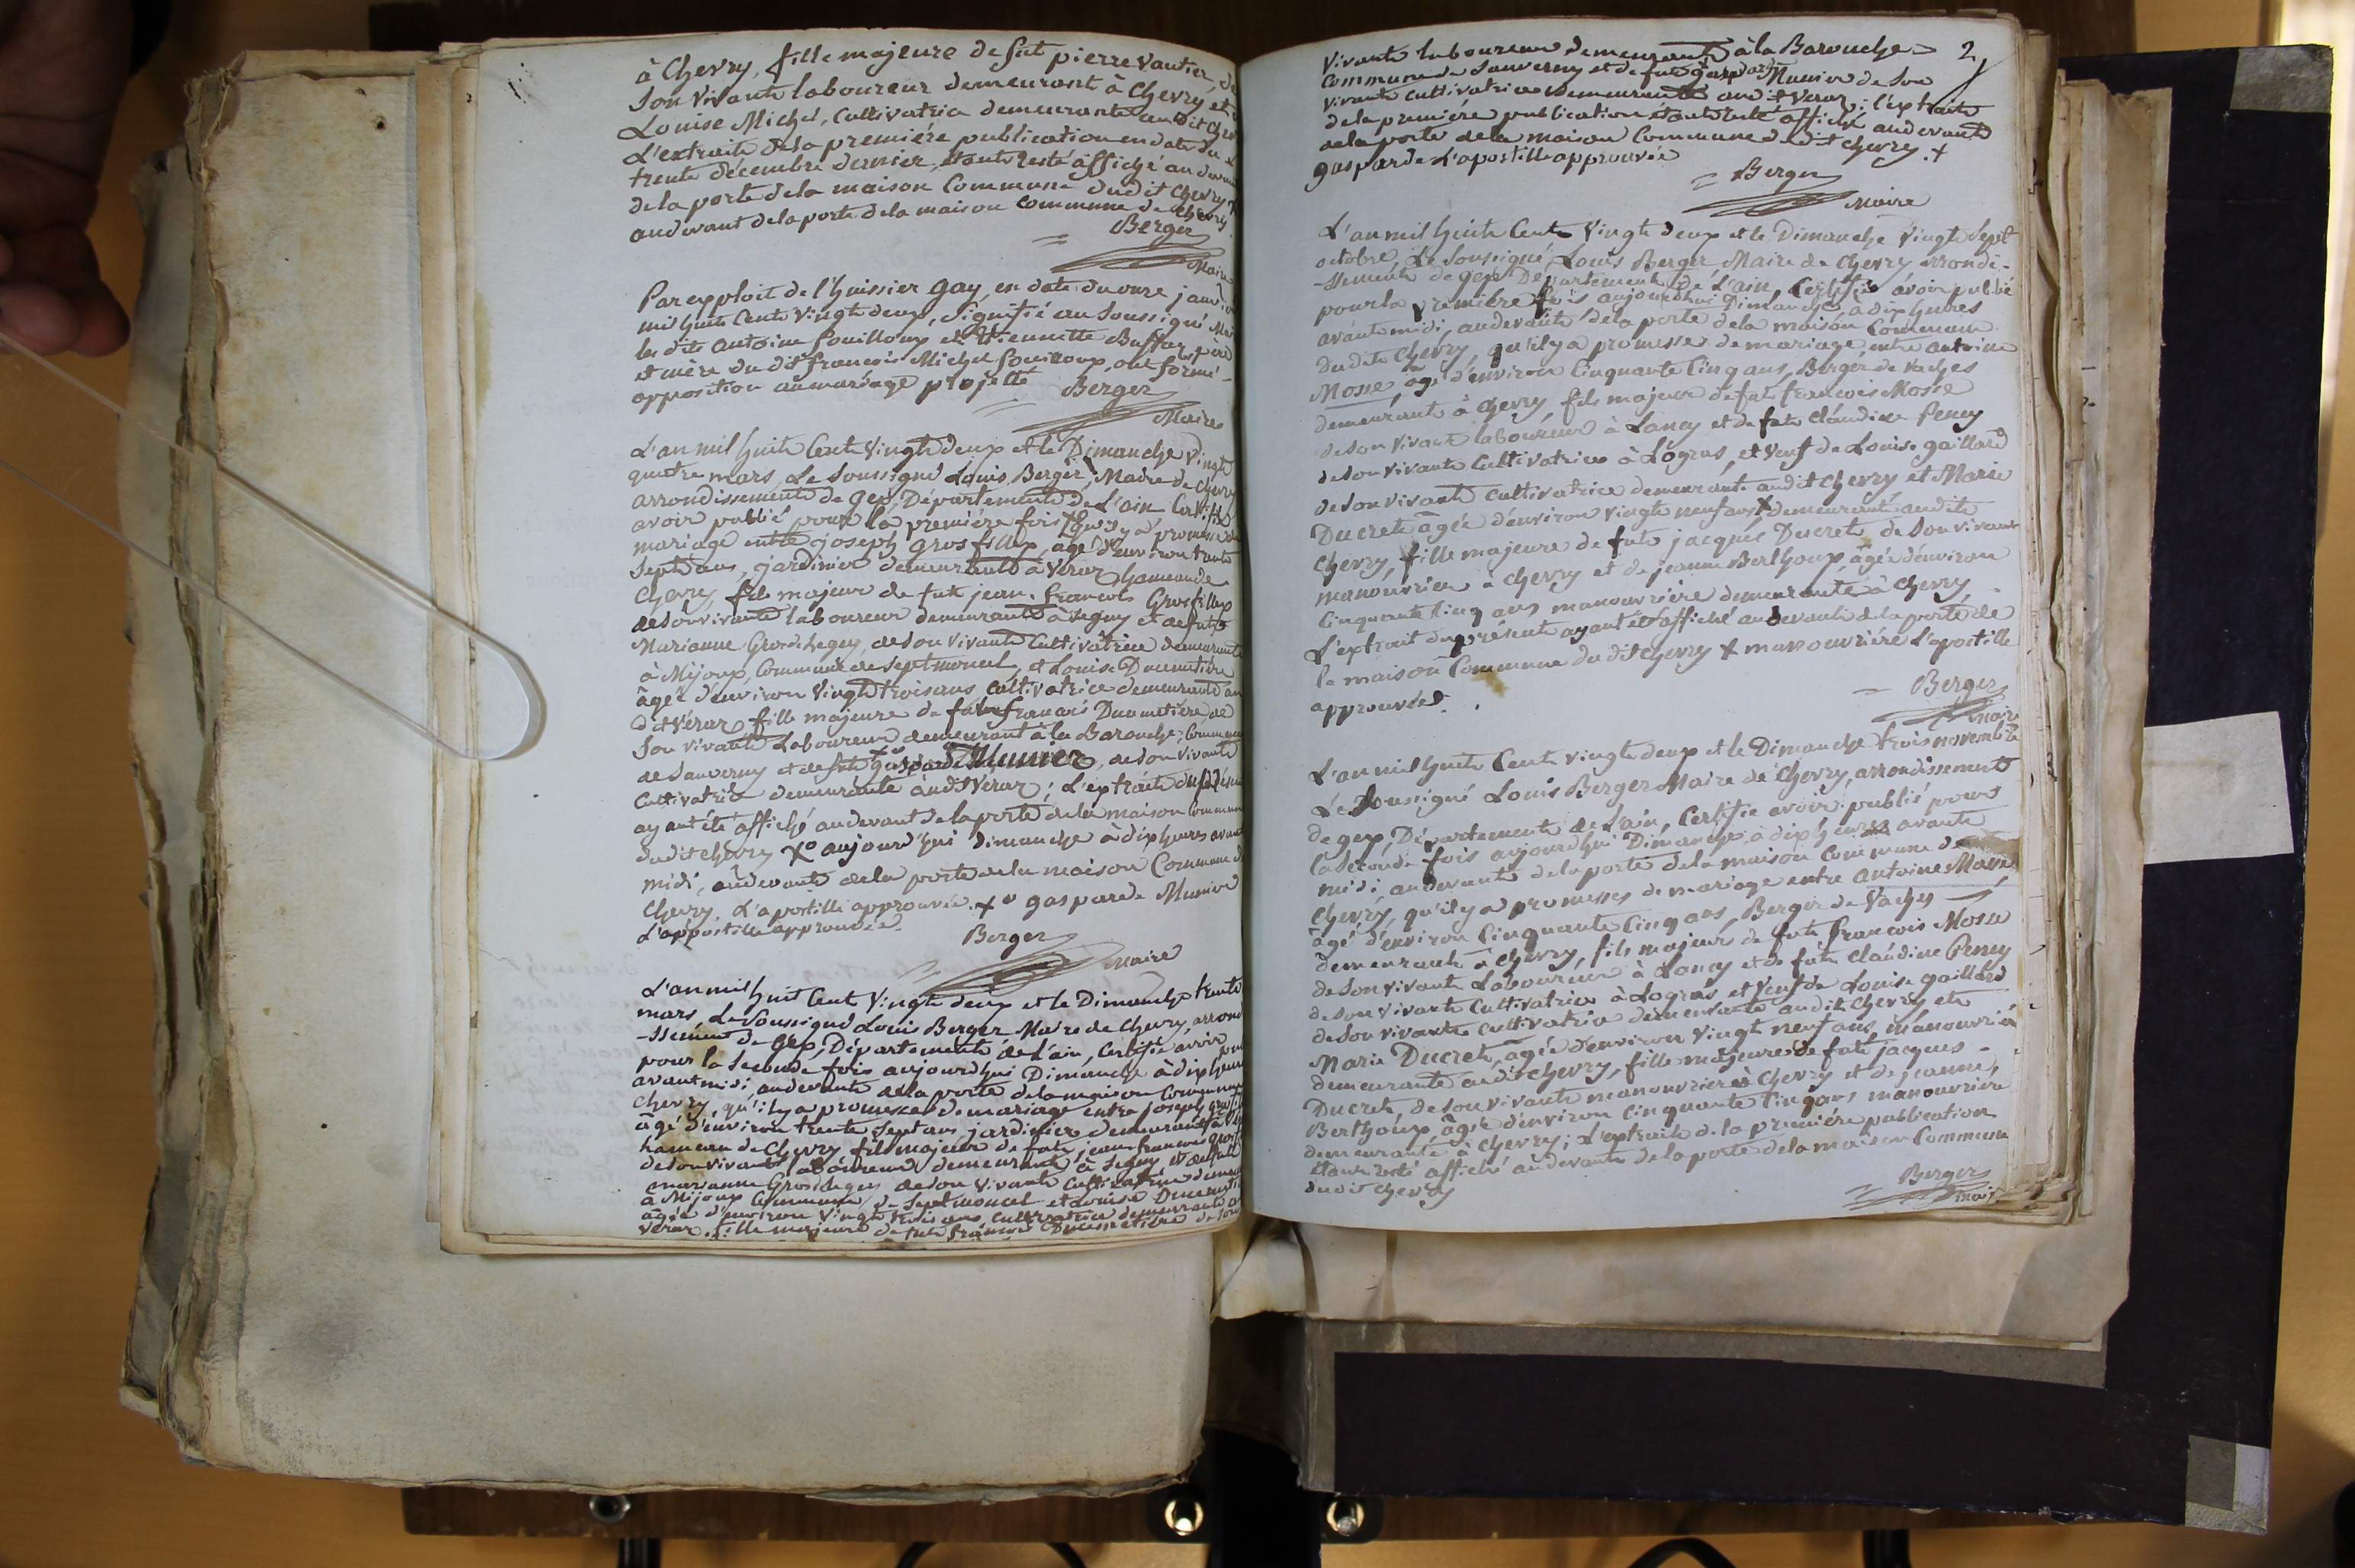 à Chevry, fille majeure de fut pierre Vautier, de
Son Vivante laboureur demeurant à Chevry et
Louise Michel, Cultivatrice demeurante audit
L'extraite dela première publication en date du
trente décembre dernier, étante resté affiché au devant
dela porte dela maison Commune dudit Chevry
audevant dela porte dela maison commune de Chevry.
Berger
Maire
Par exploit de l'huissier gay, en date du onze janvier
mil huite Cente Vingte deux, Signifié au Soussigné
les dits antoine fouilloux et Etiennette Buffar, père
et mère du dit françois Michel fouilloux, ont formé
opposition au mariage projetté
Berger
Maire
L'an mil huite Cente Vingte deux et le Dimanche Vingt
quatre mars, Le Soussigné Louis Berger, Maire de Chevry
arrondissemente de gex, Départemente de L'ain Certifie
avoir publié pour la première fois X° qu'il y a promesse de
mariage entre joseph Grosfillex, agé d'environ trente
Septe ans, jardinier demeurante à Veraz, hameau de
Chevry, fils majeur de fute jean, francois Grosfillex
de Son vivante laboureur demeurante à Segny et de fute
Marianne Gros Legey, de Son vivante Cultivatrice demeurante
à Mijoux, Commune de Septmoncel, et Louise Ducimetière
âgée d'environ Vingte trois ans, Cultivatrice demeurante au
dit Véraz, fille majeure de fute francois Ducimetière de
Son vivante Laboureur demeurant à la Barouche, Commune
de Sauverny et de fute gasparde Munier, de Son Vivante
Cultivatrice demeurante audit Veraz; L'extraite du présent
ayant été affiché au devant dela porte dela maison Commune
dudit Chevry X° aujourd'hui dimanche à dix heures avant
midi, au devante dela porte dela maison Commune de
Chevry. L'apostille approuvée. X° gasparde Munier
L'appostille approuvée.
Berger
Maire
L'an mil huit Cent Vingte deux et le Dimanche trente
mars, Le Soussigné Louis Berger Maire de Chevry, arrondi
-ssement de Gex, Départemente de L'ain, Certifie avoir
pour la Seconde fois aujourdhui Dimanche à dix heures
avant midi, au devante dela porte dela maison Commune
Chevry, qu'il y a promesse de mariage entre joseph
âgé d'environ trente Septans jardinier demeurante à
hameau de Chevry fils majeur de fute jean francois
de Son vivante laboureur demeurante à Segny et de fute
marianne Gros Legey de Son Vivante Cultivatrice
à Mijoux Commune de Septmoncel et Louise
âgée d'environ Vingte trois ans Cultivatrice demeurante
Véraz, fille majeure de fute francois Ducimetière de Son
2
Vivante laboureur demeurante à la Barouche
Commune de Sauverny et de fute gasparde Munier de Son
vivante Cultivatrice demeurante audit Veraz; l'extraite
dela première publication étante resté affiché audevante
dela porte dela maison Commune dudit Chevry. +
gasparde L'apostille approuvée
Berger
Maire
L'an mil huite Cente Vingte deux et le Dimanche Vingte Sept
octobre, Le Soussigné Louis Berger Maire de Chevry arrondi-
-ssemente de gex Départemente de L'ain, Certifie avoir publié
pour la première fois aujourdhui Dimanche, à dix heures
avante midi, audevante dela porte dela maison Commune
dudite Chevry, qu'il y a promesses de mariage entre antoine
Mosse, âgé d'environ Cinquante Cinq ans, Berger de Vaches
demeurante à Chevry, fils majeur de fute francois Mosse
de Son vivante laboureur à Lancy et de fute Claudine Peney
de Son vivante Cultivatrice à Logras, et Veuf de Louise gaillard
de Son vivante Cultivatrice demeurante audit Chevry et Marie
Ducrete âgée d'environ vingte neuf ans X demeurante audite
Chevry, fille majeure de fute jacques Ducrete de Son vivante
manouvrier à Chevry et de jeanne Berthoux, âgée d'environ
Cinquante Cinq ans manouvrière demeurante à Chevry
L'extrait du présente ayant été affiché audevante dela porte de
la maison Commune du dit Chevry X manouvrière L'apostille
approuvée.
Berger
Maire
L'an mil huite Cente Vingte deux et le Dimanche trois novembre
Le Soussigné Louis Berger Maire de Chevry, arrondissemente
de gex, Départemente de L'ain, Certifie avoir publié pour
la Seconde fois aujourdhui Dimanche, à dix heures avante
midi audevante dela porte dela maison commune de
Chevry, qu'il y a promesses de mariage entre antoine Mosse
âgé d'environ Cinquante Cinq ans, Berger de Vaches
demeurante à Chevry, fils majeur de fute francois Mosse
de Son vivante Laboureur à Lancy et de fute Claudine Peney
de Son vivante Cultivatrice à Logras, et Veuf de Louise gaillard
de Son vivante Cultivatrice demeurante audit Chevry et
Marie Ducrete, agée d'environ Vingt neuf ans, manouvrière
demeurante audit Chevry, fille majeure de fute jacques
Ducrete, de Son vivante manouvrier à Chevry et de jeanne,
Berthoux, âgée d'environ Cinquante Cinq ans manouvrière
demeurante à Chevry; L'extraite dela première publication
étante resté affiché audevante dela porte dela maison Commune
dudit Chevry
Berger
Maire